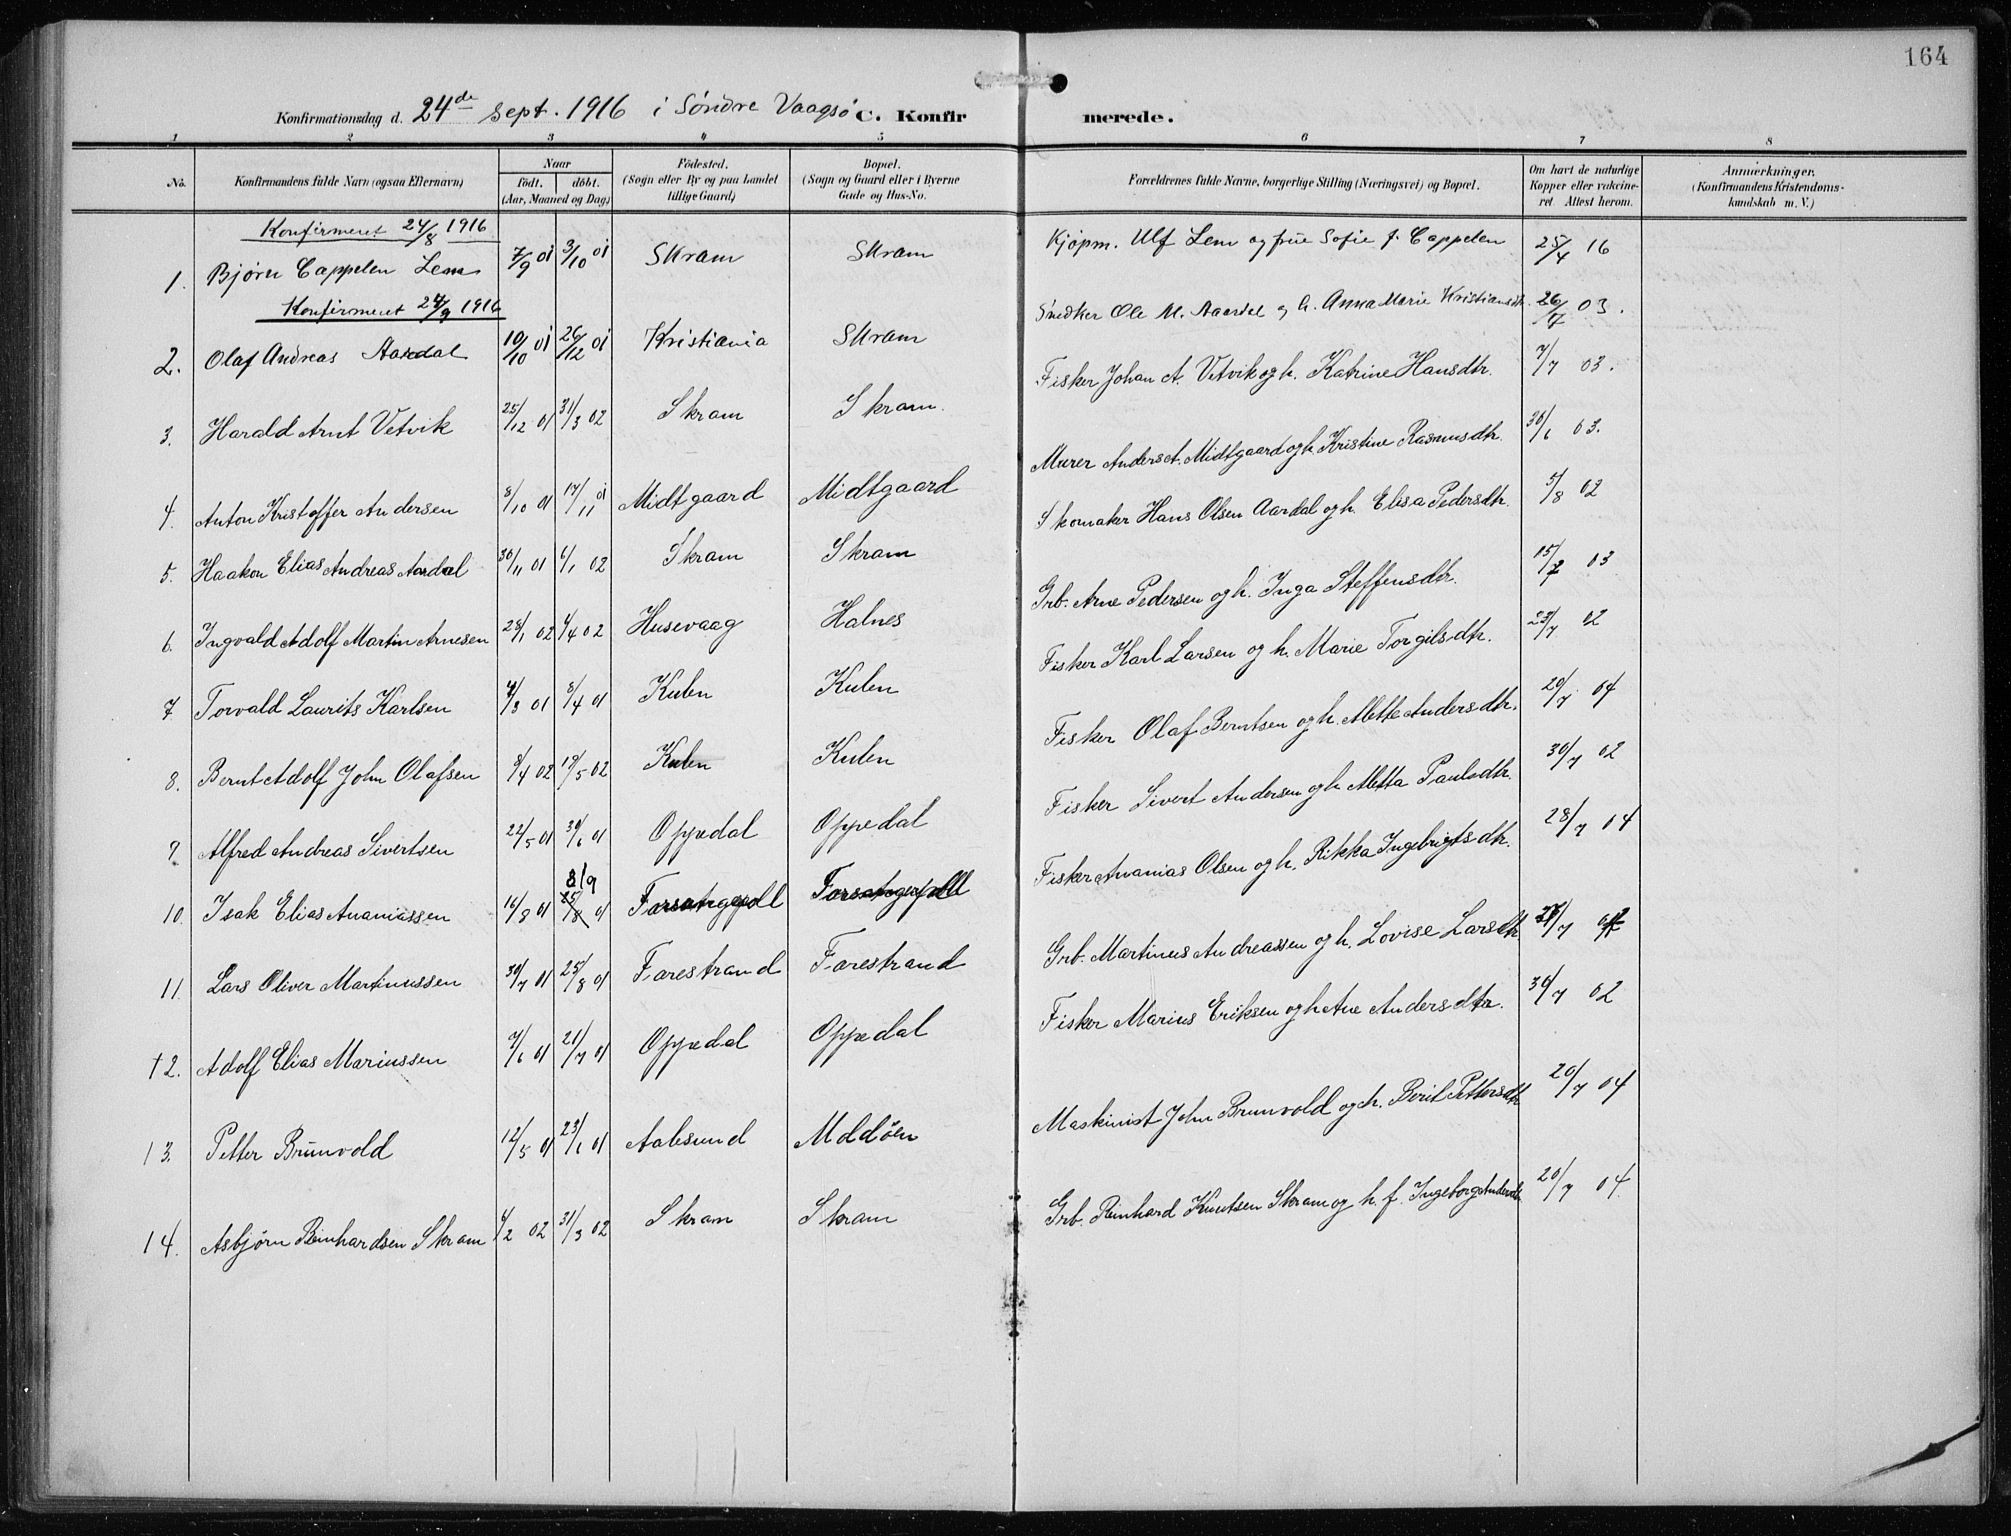 164
Konfirmationsdag d. 24de Sept. 1916 i Søndre Vaagsø C. Konfir merede.
1 2 3 4 5 6 7 8
No. Konfirmandens fulde Navn (ogsaa Efternavn) Naar födt. döbt. (Aar, Maaned og Dag) Födested. (Sogn eller By og paa Landet tillige Gaard) Bopæl. (Sogn og Gaard eller i Byerne Gade og Hus-No. Forældrenes fulde Navne, borgerlige Stilling (Næringsvei) og Bopæl. Om havt de naturlige Kopper eller vakcineret. Attest herom. Anmærkninger, (Konfirmandens Kristendomskundskab m. V.)
Konfirmeret 24/8 1916
1. Bjørn Cappelen Lem 7/9 01 3/10 01 Skram Skram Kjøpm. Ulf Lem og frue Sofie f. Cappelen 25/4 16
Konfirmeret 24/9 1916
2. Olaf Andreas Aardal 10/10 01 26/12 01 Kristiania Skram Snedker Ole M. Aardal og h. Anna Marie Kristiansdtr. 26/7 03.
3. Harald Arnt Vetvik 25/12 01 31/3 02 Skram Skram. Fisker Johan A. Vetvik og h. Katrine Hansdtr. 7/7 03.
4. Anton Kristoffer Andersen 8/10 01 17/11 01 Midtgaard Midtgaard Murer Anders A. Midtgaard og h. Kristine Rasmusdtr. 30/6 03.
5. Haakon Elias Andreas Aardal 30/11 01 6/1 02 Skram Skram Skomaker Hans Olsen Aardal og h. Elisa Pedersdtr. 5/8 02
6. Ingvald Adolf Martin Arnesen 28/1 02 6/4 02 Husevaag Halnes Grb. Arne Pedersen og h. Inga Steffensdtr. 15/7 03
7 Torvald Laurits Karlsen 4/3 01 8/4 01 Kulen Kulen Fisker Karl Larsen og h. Marie Torgilsdtr. 23/7 02
8. Bernt Adolf John Olafsen 8/4 02 19/5 02 Kulen Kulen Fisker Olaf Berntsen og h. Mette Andersdtr. 20/7 04
9. Alfred Andreas Sivertsen 22/5 01 30/6 01 Oppedal Oppedal Fisker Sivert Andersen og h. Metta Paulsdtr. 30/7 02
10. Isak Elias Ananiassen 16/8 01 8/9 25/8 01 Fisker Ananias Olsen og h. Rikka Ingebrigtsdtr. 28/7 04
11. Lars Oliver Martinussen 30/7 01 25/8 01 Farestrand Farestrand Grb. Martinus Andreassen og h. Lovise Larsdtr.
12. Adolf Elias Mariussen 7/6 01 21/7 01 Oppedal Oppedal Fisker Marius Eriksen og h. Ane Andersdtr. 30/7 02
13. Petter Brunvold 12/5 01 23/6 01 Aalesund Moldöen Maskinist John Brunvold og h. Berit Pettersdtr 20/7 04
14. Asbjørn Reinhardsen Skram 6/2 02 31/3 02 Skram Skram Grb. Reinhard Knutsen Skram og h. f. Ingeborg Andersdtr. 20/7 04.